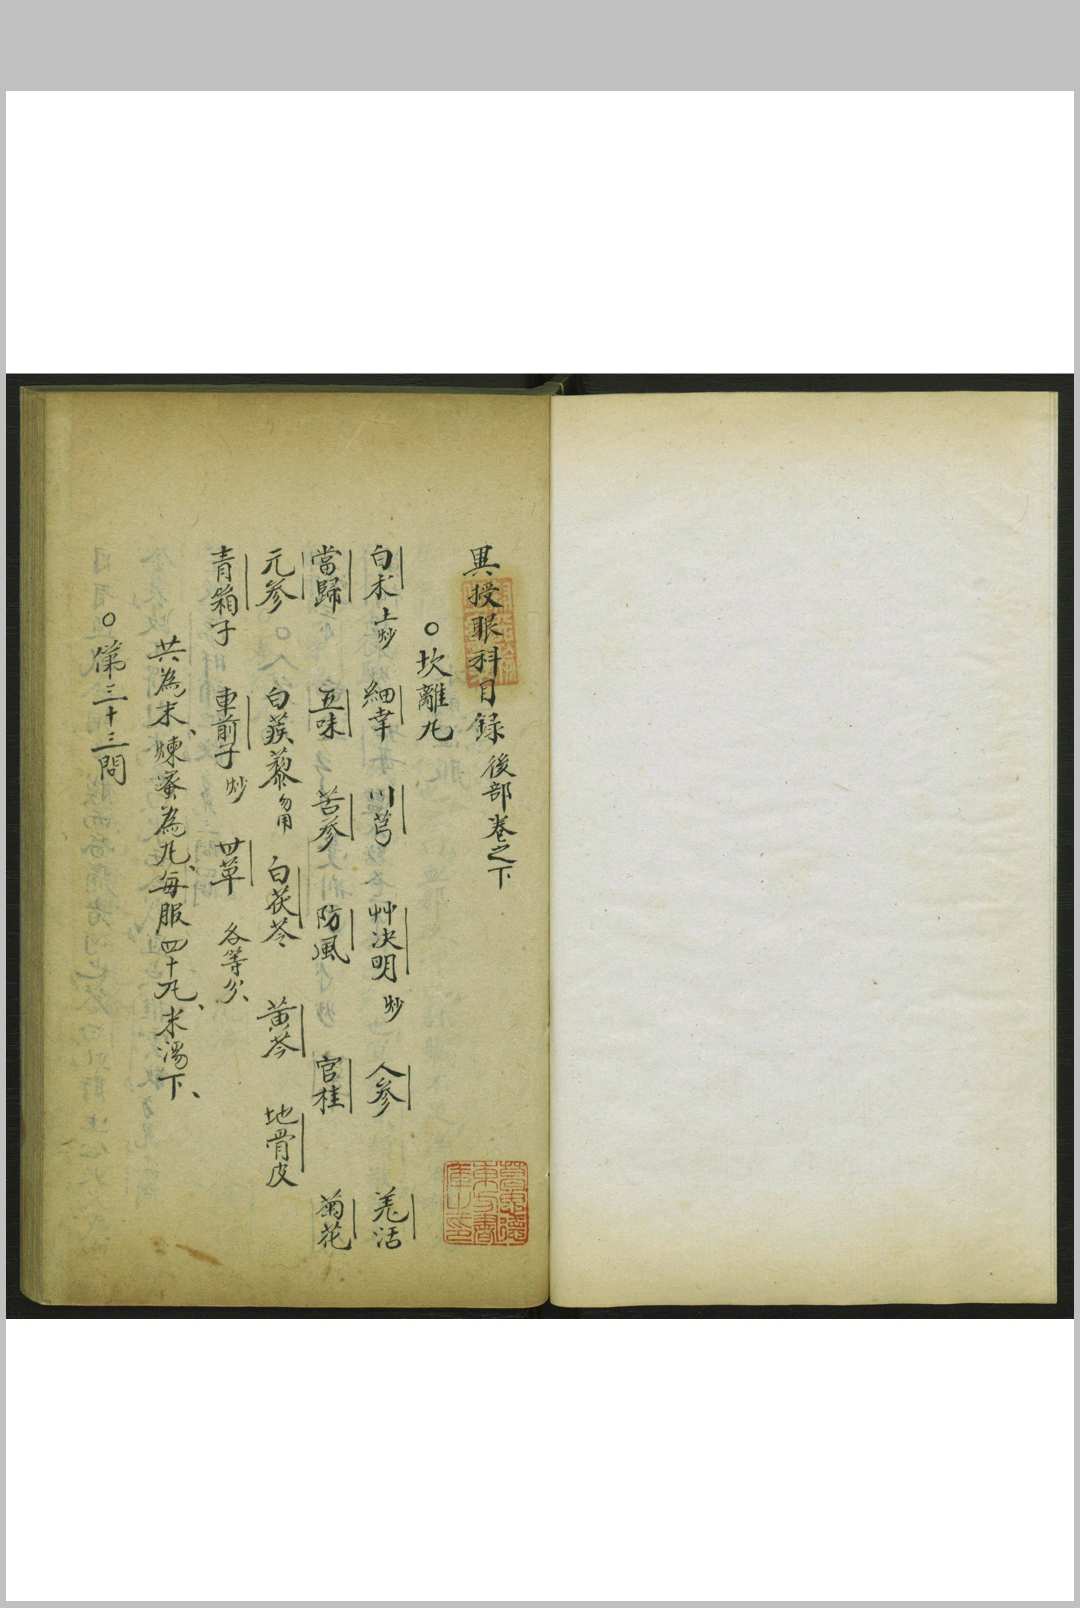 異授眼科目録 後部卷之下
○坎離丸
白术 土炒 細辛 川芎 艸决明 炒 人參 羌活
當歸 五味 苦參 防風 官桂 菊花
元參 白蒺藜 白茯苓 黄芩 地骨皮
青箱子 車前子 炒 甘草 各等分
共為末、煉蜜為丸、每服四十丸、米湯下、
○第三十三問